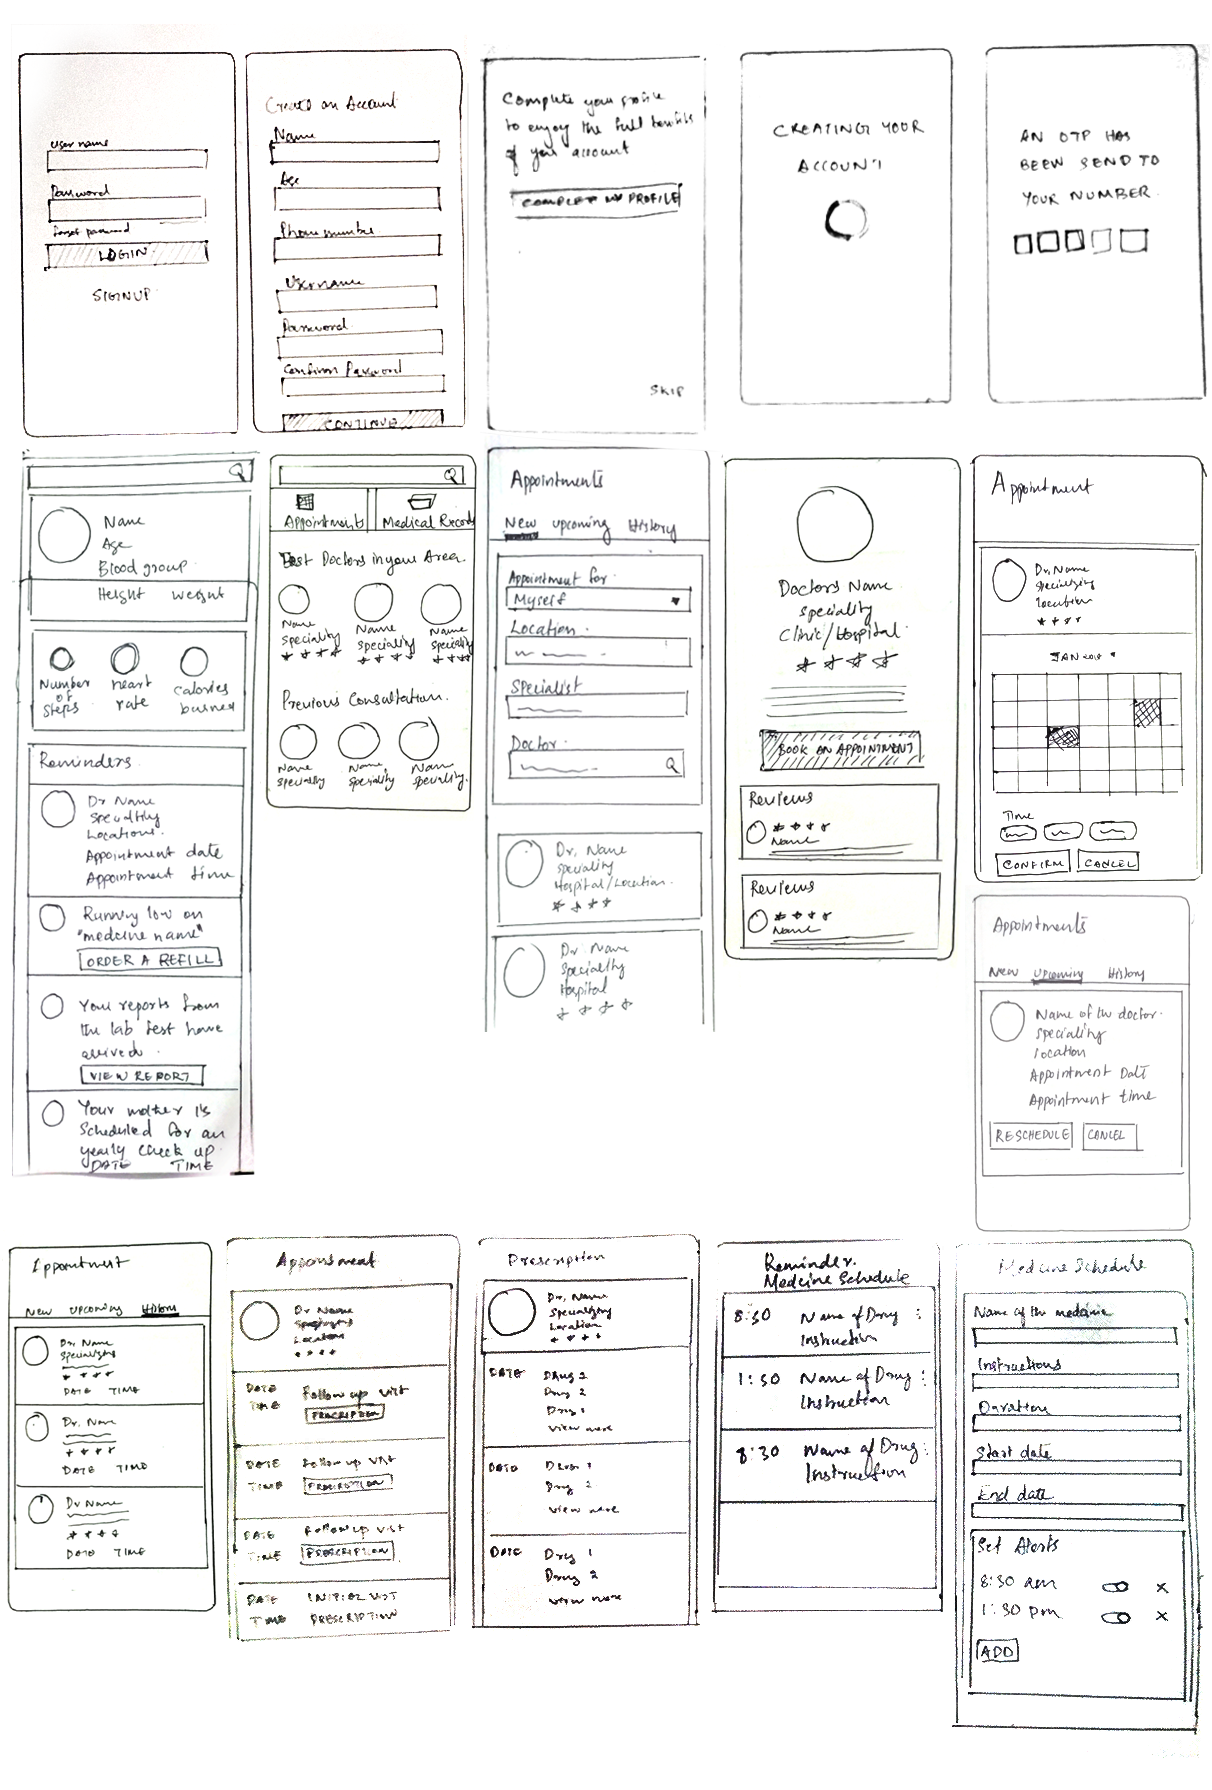 User name
Password
Forgot password
LOGIN
SIGNUP
Create an Account
Name
Age
Phone number
Username
Password
Confirm Password
CONTINUE
Complete your profile
to enjoy the full benefits
of your account
COMPLETE MY PROFILE
SKIP
CREATING YOUR
ACCOUNT
AN OTP HAS
BEEN SEND TO
YOUR NUMBER.
Name
Age
Blood group
Height weight
Number
of
Steps
heart
rate
calories
burned
Reminders
Dr Name
Location
Appointment date
Appointment time
Running low on
"medcine name"
ORDER A REFILL
Your reports from
the lab test have
arrived.
VIEW REPORT
Your mother is
scheduled for an
yearly check up
DATE TIME
Appointments
Medical Records
Best Doctors in your Area.
Name
speciality
Name
speciality
Name
speciality
Previous Consultation.
Name
speciality
Name
speciality
Name
speciality.
Appointments
New upcoming History
Appointment for
Myself
Location
Specialist
Doctor
Dr. Name
speciality
Hospital/Location.
Dr. Name
Speciality
Hospital
Doctors Name
speciality
Clinic/Hospital
BOOK AN APPOINTMENT
Reviews
Name
Reviews
Name
Appointment
Dr. Name
location
JAN 2018
Time
CONFIRM CANCEL
Appointments
New Upcoming History
Name of the doctor.
speciality
location
Appointment Date
Appointment time
RESCHEDULE CANCEL
Appointment
New upcoming History
Dr. Name
DATE TIME
Dr. Name
DATE TIME
Dr Name
DATE TIME
Appointment
Dr Name
Location
DATE Follow up visit
TIME PRESCRIPTION
DATE Follow up visit
TIME PRESCRIPTION
DATE Follow up visit
TIME PRESCRIPTION
DATE INITIAL VISIT
TIME PRESCRIPTION
Prescription
Dr. Name
Location
DATE Drug 2
Drug 2
Drug 1
view more
DATE Drug 1
Drug 2
view more
DATE Drug 1
Drug 2
view more
Reminder.
Medcine Schedule
8:30 Name of Drug :
Instruction
1:30 Name of Drug :
Instruction
8:30 Name of Drug :
Instruction
Medcine Schedule
Name of the medcine
Instructions
Duration
Start date
End date
Set Alerts
8:30 am
1:30 pm
ADD